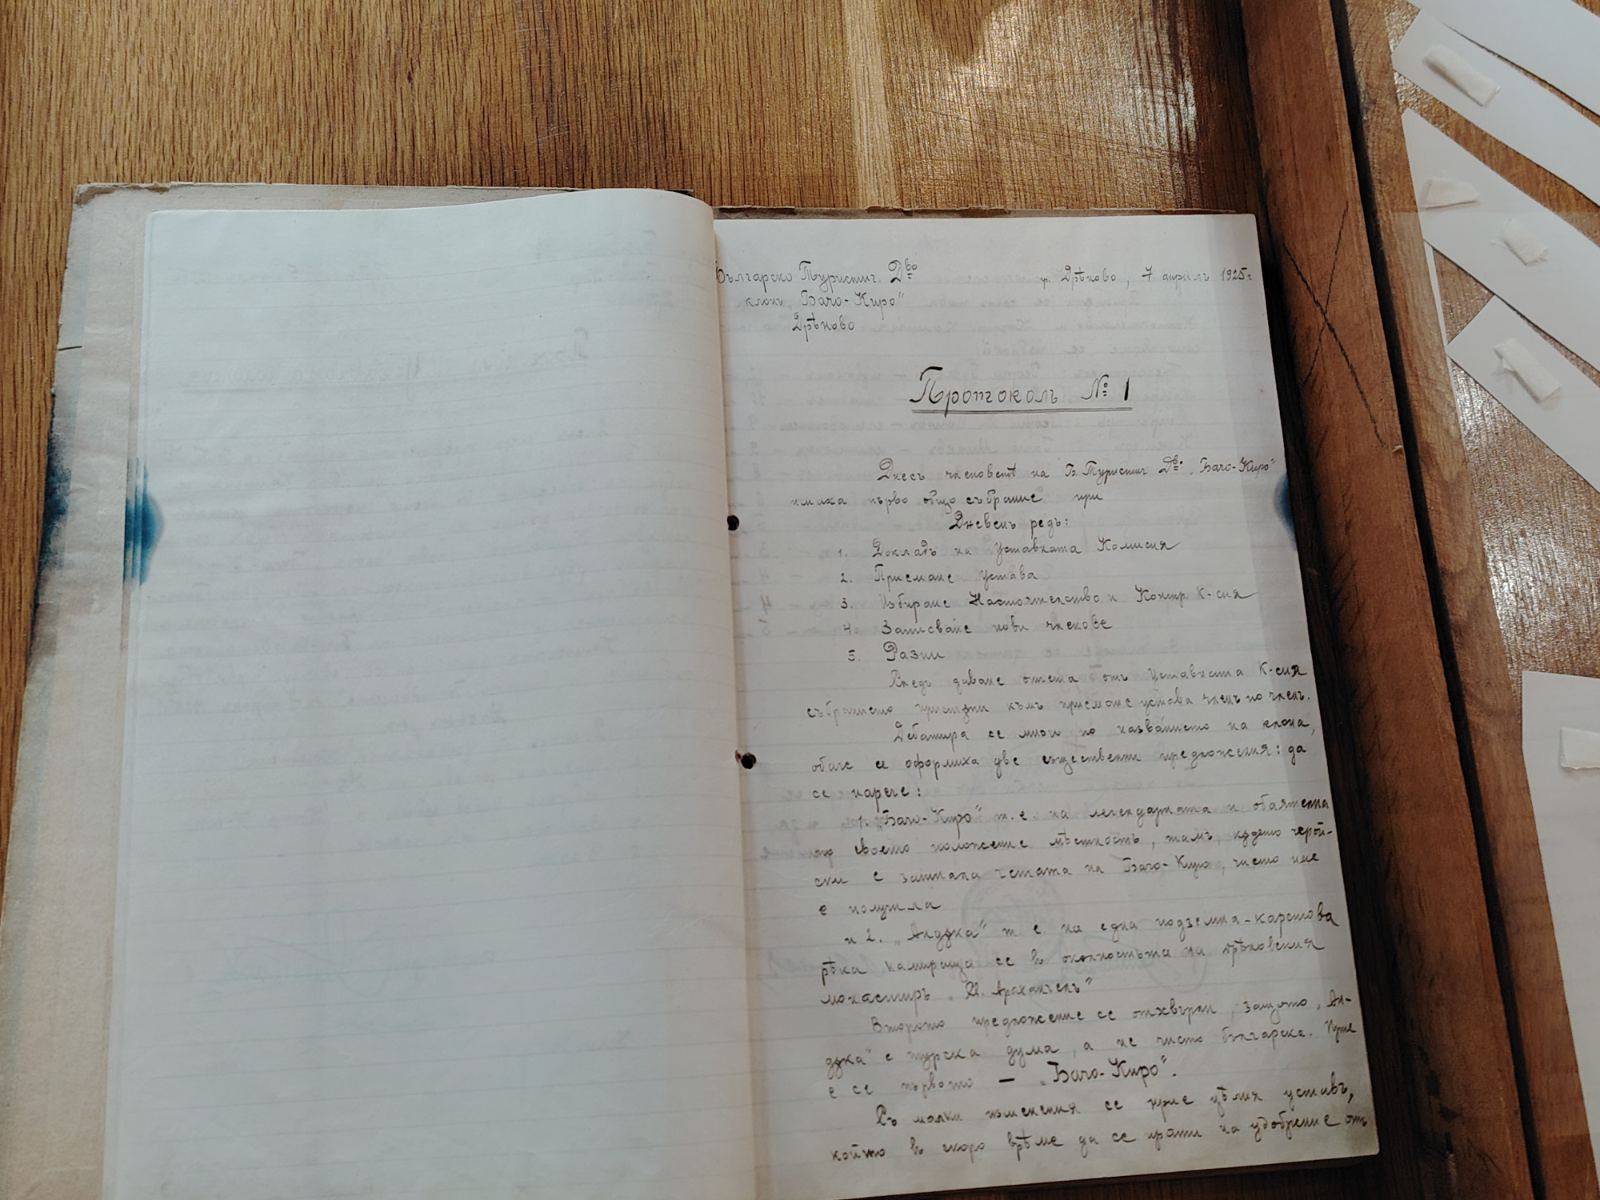 Българско Турист. Д<sup>во</sup> гр. Дрѣново, 7 априлъ 1925 г.
клонъ „Бачо-Киро“
Дрѣново
Протоколъ № 1
Днесъ членоветѣ на Б. Турист. Д<sup>во</sup> „Бачо-Киро“
имаха първо общо събрание при
Дневенъ редъ:
1. Докладъ на Уставната Комисия
2. Приемане Устава
3. Избиране Настоятелство и Контр. К-сия
4. Записване нови членове
5. Разни
Следъ даване отчета отъ Уставната К-сия
събранието пристѫпи къмъ приемане устава членъ по членъ.
Дебатира се много по названието на клона,
обаче се оформиха две сѫществени предложения: да
се нарече:
1. „Бачо-Киро“ т. е. на легендарната и обаятелна
по своето положение мѣстность, тамъ, кѫдето герой-
ски е загинала четата на Бачо-Киро, чието име
е получила
и 2. „Андѫка“ т е на една подземна-карстова
рѣка намираща се въ околностьта на дрѣновския
монастиръ „Св. Архангелъ“
Второто предложение се отхвърли, защото „Ан-
дѫка“ е турска дума, а не чисто българска. Прие
се първото — „Бачо-Киро“.
Съ малки изменения се прие цѣлия уставъ,
който въ скоро врѣме да се прати на удобрение отъ